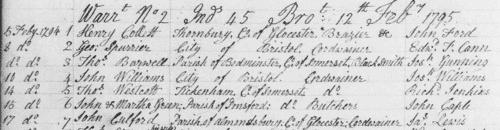 Warrt. No. 2 Ind 45 Brot. 12th. Feby. 1795
5 Feby. 1794 1 Henry Collett Thornbury, C. of Glocester Brazier &c John Ford
8 do. 2 Geo. Spurrier City of Bristol, Cordwainer Edwd. T. Cann
do. do. 3 Thos. Barwell Parish of Bedminster, C. of Somerset, Black Smith Jos. Gunning
10 do. 4 John Williams City of Bristol. Cordwainer Jos. Williams
14 do. 5 Thos. Westcott Tickenham, C. of Somerset, do. Richd. Jenkins
15 do. 6 John & Martha Green, Parish of do. Butchers John Caple
17 do. 7 John Parish of Almondsbury, C. of Glocester, Cordwainer Jas. Lewis